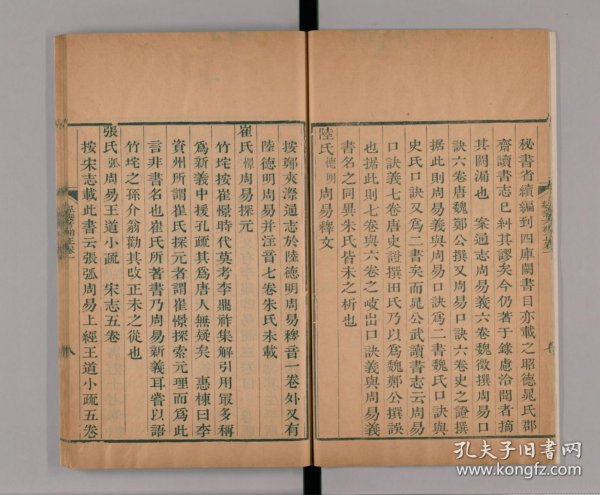 秘書省續編到四庫闕書目亦載之昭德晁氏郡
齋讀書志已糾其謬矣今仍著于錄慮洽聞者摘
其闕漏也　案通志周易義六卷魏徵撰周易口
訣六卷唐魏鄭公撰又周易口訣六卷史之證撰
據此則周易義與周易口訣為二書魏氏口訣與
史氏口訣又為二書矣而晁公武讀書志云周易
口訣義七卷唐史證撰田氏乃以為魏鄭公撰誤
也據此則七卷與六卷之歧出口訣義與周易義
書名之同異朱氏皆未之析也
陸氏德明周易釋文
按鄭夾漈通志於陸德明周易釋音一卷外又有
陸德明周易并注音七卷朱氏未載
崔氏憬周易探元
竹垞按崔憬時代莫考李鼎祚集解引用最多稱
為新義中援孔疏其為唐人無疑矣　惠棟曰李
資州所謂崔氏探元者謂崔憬探索元理而為此
言非書名也崔氏所著書乃周易新義耳嘗以語
竹垞之孫介翁勸其改正未之從也
張氏弧周易王道小疏　宋志五卷
按宋志載此書云張弧周易上經王道小疏五卷
八
孔夫子旧书网
www.kongfz.com